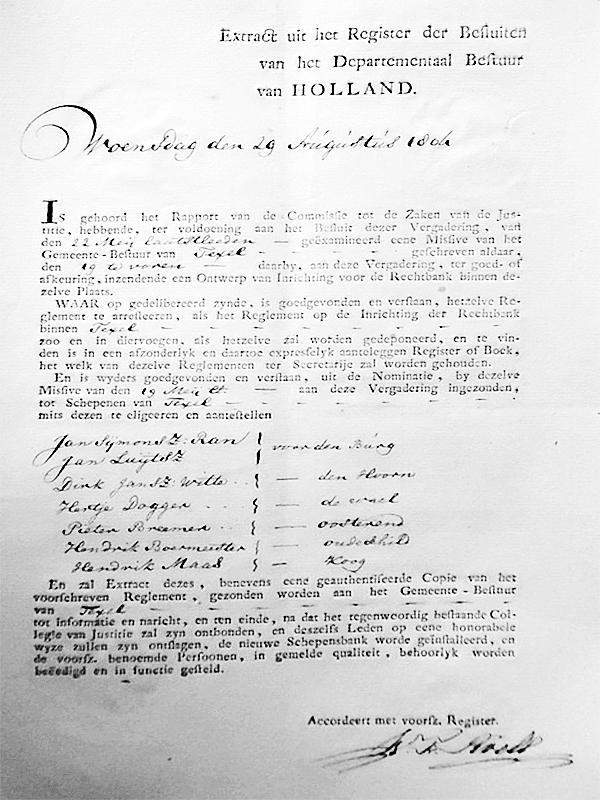 Extract uit het Register der Besluiten
van het Departementaal Bestuur
van HOLLAND.
Woensdag den 29 Augustus 1804
Is gehoord het Rapport van de Commissie tot de Zaken van de Jus-
titie, hebbende, ter voldoening aan het Besluit dezer Vergadering, van
den 22 Meij laatstleeden — geëxamineerd eene Missive van het
Gemeente-Bestuur van Texel — geschreven aldaar,
den 19 te voren — daarby, aan deze Vergadering, ter goed- of
afkeuring, inzendende een Ontwerp van Inrichting voor de Rechtbank binnen de-
zelve Plaats.
WAAR op gedelibereerd zynde, is goedgevonden en verstaan, hetzelve Re-
glement te arresteeren, als het Reglement op de Inrichting der Rechtbank
binnen Texel
zoo en in diervoegen, als hetzelve zal worden gedeponeerd, en te vin-
den is in een afzonderlyk en daartoe expresselyk aanteleggen Register of Boek,
het welk van dezelve Reglementen ter Secretarije zal worden gehouden.
En is wyders goedgevonden en verstaan, uit de Nominatie, by dezelve
Missive van den 19 Meij — aan deze Vergadering ingezonden,
tot Schepenen van Texel
mits dezen te eligeeren en aantestellen
Jan Sijmonsz: Ran } voor den Burg
Jan Luijtsz
Dirk Jansz: Witte } — den Hoorn
Hertje Dogger } — de waal
Pieter Breemer } — oosterend
Hendrik Boermeester } — oudeschild
Hendrik Maas } — Koog
En zal Extract dezes, benevens eene geauthentiseerde Copie van het
voorschreven Reglement, gezonden worden aan het Gemeente-Bestuur
van Texel
tot informatie en naricht, en ten einde, na dat het tegenwoordig bestaande Col-
legie van Justitie zal zyn ontbonden, en deszelfs Leden op eene honorabele
wyze zullen zyn ontslagen, de nieuwe Schepensbank worde geïnstalleerd, en
de voorsz. benoemde Persoonen, in gemelde qualiteit, behoorlyk worden
beëedigd en in functie gesteld.
Accordeert met voorsz. Register.